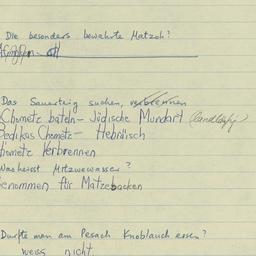 Die besonders bewahrte Matzoh?
Das Sauerteig suchen, verbrennen
Chometz bateln - Jüdische Mundart (landläufig)
Bedikas Chometz - Hebräisch
Chometz Verbrennen
Was heisst Mitzwewasser?
Genommen für Matzebacken
Durfte man am Pesach Knoblauch essen?
weiss nicht